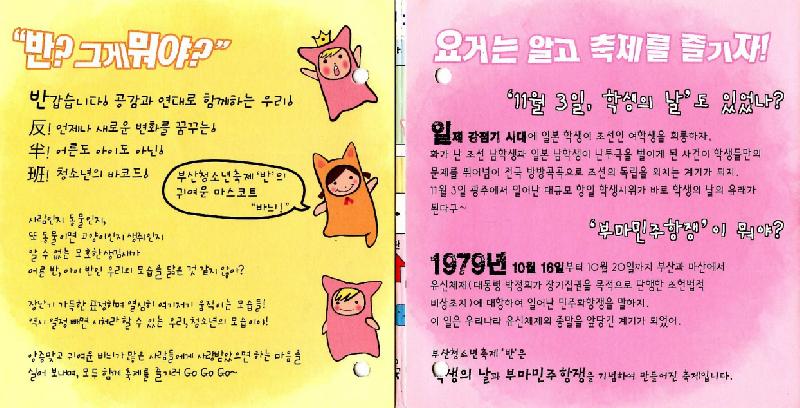 "반? 그게 뭐야?"
반갑습니다! 공감과 연대로 함께하는 우리!
反! 언제나 새로운 변화를 꿈꾸는!
半! 어른도 아이도 아닌!
班! 청소년의 바코드!
부산청소년축제 '반'의
귀여운 마스코트
"바느!"
사람인지 동물인지,
또 동물이면 고양이인지 생쥐인지
알 수 없는 모호한 생김새가
어른 반, 아이 반인 우리의 모습을 닮은 것 같지 않아?
장난기 가득한 표정하며 열심히 여기저기 움직이는 모습들!
역시 열정 빼면 시체라 할 수 있는 우리, 청소년의 모습이야!
앙증맞고 귀여운 바느가 많은 사람들에게 사랑받았으면 하는 마음을
실어 보내며, 모두 함께 축제를 즐기러 Go Go Go~
요거는 알고 축제를 즐기자!
'11월 3일, 학생의 날'도 있었나?
일제 강점기 시대에 일본 학생이 조선인 여학생을 희롱하자,
화가 난 조선 남학생과 일본 남학생이 난투극을 벌이게 된 사건이 학생들만의
문제를 뛰어넘어 전국 방방곡곡으로 조선의 독립을 외치는 계기가 되지.
11월 3일 광주에서 일어난 대규모 항일 학생시위가 바로 학생의 날의 유래가
된다구~
'부마민주항쟁'이 뭐야?
1979년 10월 16일부터 10월 20일까지 부산과 마산에서
유신체제(대통령 박정희가 장기집권을 목적으로 단행한 초헌법적
비상조치)에 대항하여 일어난 민주화항쟁을 말하지.
이 일은 우리나라 유신체제의 종말을 앞당긴 계기가 되었어.
부산청소년축제 '반'은
학생의 날과 부마민주항쟁을 기념하여 만들어진 축제입니다.